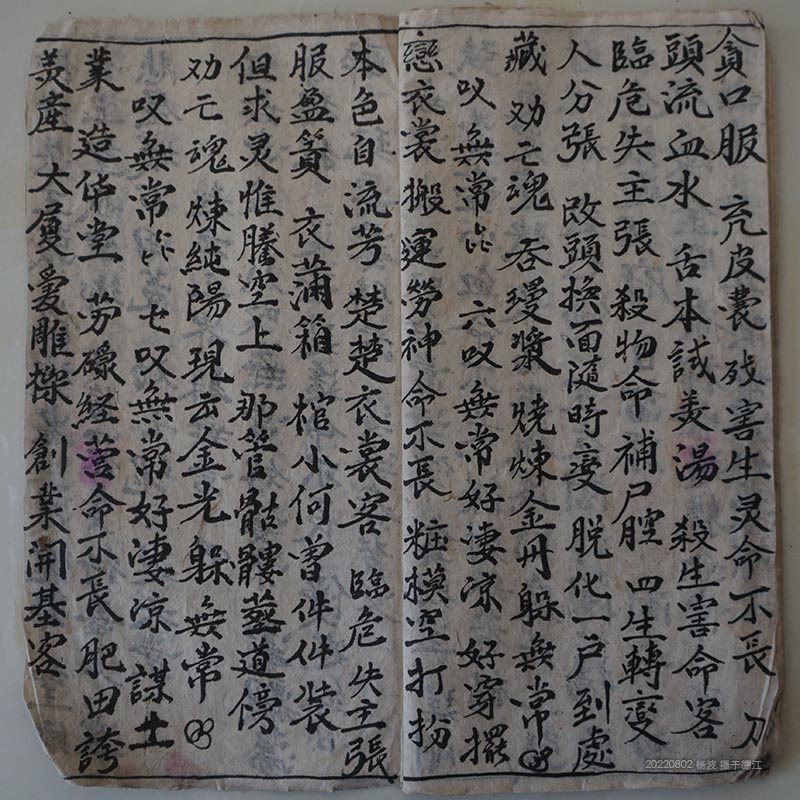 貪口服 充皮囊 残害生灵命不長 刀
頭流血水 舌本試美湯 殺生害命客
臨危失主張 殺物命 補尸腔 四生轉變
人分張 改頭換面隨時变 脱化一户到處
藏 劝亡魂 吞瓊漿 燒煉金丹躲無常
叹無常 六叹無常好凄凉 好穿擺
戀衣裳 搬運勞神命不長 粧摸空打扮
本色自流芳 楚楚衣裳客 臨危失主張
服盈篢 衣蒲箱 棺小何曾件件装
但求灵惟騰空上 那管骷髏墓道傍
劝亡魂 煉純陽 現云金光躲無常
叹無常 七叹無常好凄凉 謀土
業 造华堂 劳碌经营命不長 肥田誇
美產 大厦爱雕樑 創業開基客
20220802 杨波 攝于德江